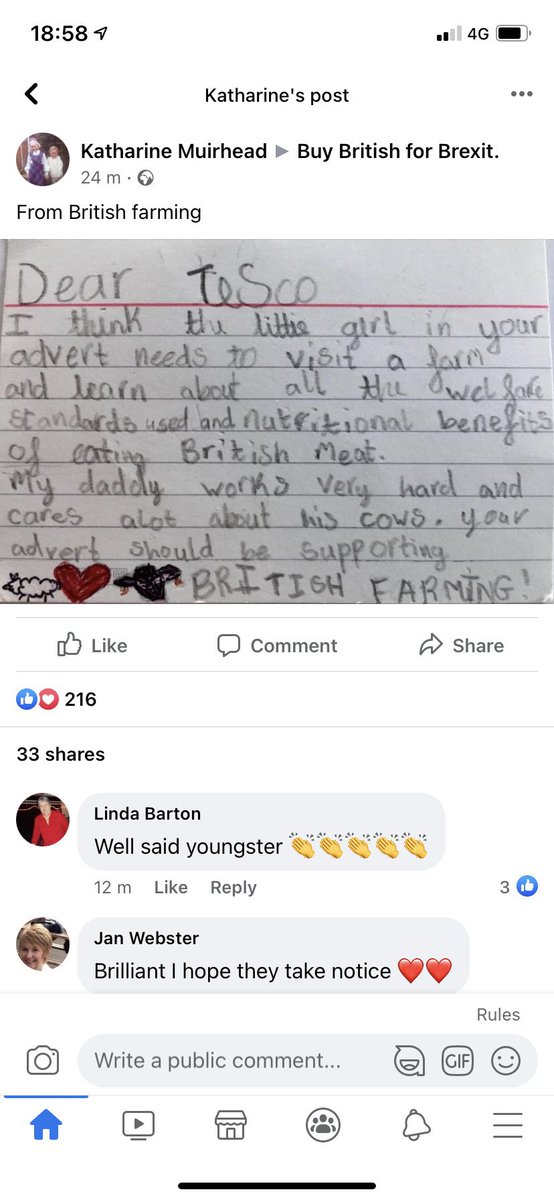 18:58
4G
Katharine's post
Katharine Muirhead ▶ Buy British for Brexit.
24 m ·
From British farming
Dear TeSco
I think the little girl in your
advert needs to visit a farm
and learn about all the welfare
standards used and nutritional benefits
of eating British Meat.
My daddy works very hard and
cares alot about his cows. your
advert should be supporting
BRITISH FARMING!
Like Comment Share
216
33 shares
Linda Barton
Well said youngster 👏👏👏👏👏
12 m Like Reply 3
Jan Webster
Brilliant I hope they take notice ❤️❤️
Rules
Write a public comment... GIF